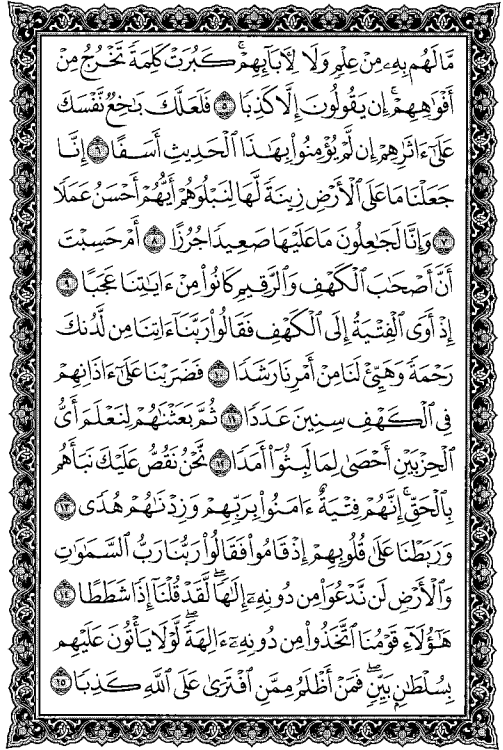 مَّا لَهُم بِهِۦ مِنْ عِلْمٍ وَلَا لِأَبَآئِهِمْ ۚ كَبُرَتْ كَلِمَةً تَخْرُجُ مِنْ
أَفْوَٰهِهِمْ ۚ إِن يَقُولُونَ إِلَّا كَذِبًا ۝٥ فَلَعَلَّكَ بَـٰخِعٌ نَّفْسَكَ
عَلَىٰٓ ءَاثَـٰرِهِمْ إِن لَّمْ يُؤْمِنُوا۟ بِهَـٰذَا ٱلْحَدِيثِ أَسَفًا ۝٦ إِنَّا
جَعَلْنَا مَا عَلَى ٱلْأَرْضِ زِينَةً لَّهَا لِنَبْلُوَهُمْ أَيُّهُمْ أَحْسَنُ عَمَلًا
۝٧ وَإِنَّا لَجَـٰعِلُونَ مَا عَلَيْهَا صَعِيدًا جُرُزًا ۝٨ أَمْ حَسِبْتَ
أَنَّ أَصْحَـٰبَ ٱلْكَهْفِ وَٱلرَّقِيمِ كَانُوا۟ مِنْ ءَايَـٰتِنَا عَجَبًا ۝٩
إِذْ أَوَى ٱلْفِتْيَةُ إِلَى ٱلْكَهْفِ فَقَالُوا۟ رَبَّنَآ ءَاتِنَا مِن لَّدُنكَ
رَحْمَةً وَهَيِّئْ لَنَا مِنْ أَمْرِنَا رَشَدًا ۝١٠ فَضَرَبْنَا عَلَىٰٓ ءَاذَانِهِمْ
فِى ٱلْكَهْفِ سِنِينَ عَدَدًا ۝١١ ثُمَّ بَعَثْنَـٰهُمْ لِنَعْلَمَ أَىُّ
ٱلْحِزْبَيْنِ أَحْصَىٰ لِمَا لَبِثُوٓا۟ أَمَدًا ۝١٢ نَّحْنُ نَقُصُّ عَلَيْكَ نَبَأَهُم
بِٱلْحَقِّ ۚ إِنَّهُمْ فِتْيَةٌ ءَامَنُوا۟ بِرَبِّهِمْ وَزِدْنَـٰهُمْ هُدًى ۝١٣
وَرَبَطْنَا عَلَىٰ قُلُوبِهِمْ إِذْ قَامُوا۟ فَقَالُوا۟ رَبُّنَا رَبُّ ٱلسَّمَـٰوَٰتِ
وَٱلْأَرْضِ لَن نَّدْعُوَا۟ مِن دُونِهِۦٓ إِلَـٰهًا ۖ لَّقَدْ قُلْنَآ إِذًا شَطَطًا ۝١٤
هَـٰٓؤُلَآءِ قَوْمُنَا ٱتَّخَذُوا۟ مِن دُونِهِۦٓ ءَالِهَةً ۖ لَّوْلَا يَأْتُونَ عَلَيْهِم
بِسُلْطَـٰنٍۭ بَيِّنٍ ۖ فَمَنْ أَظْلَمُ مِمَّنِ ٱفْتَرَىٰ عَلَى ٱللَّهِ كَذِبًا ۝١٥